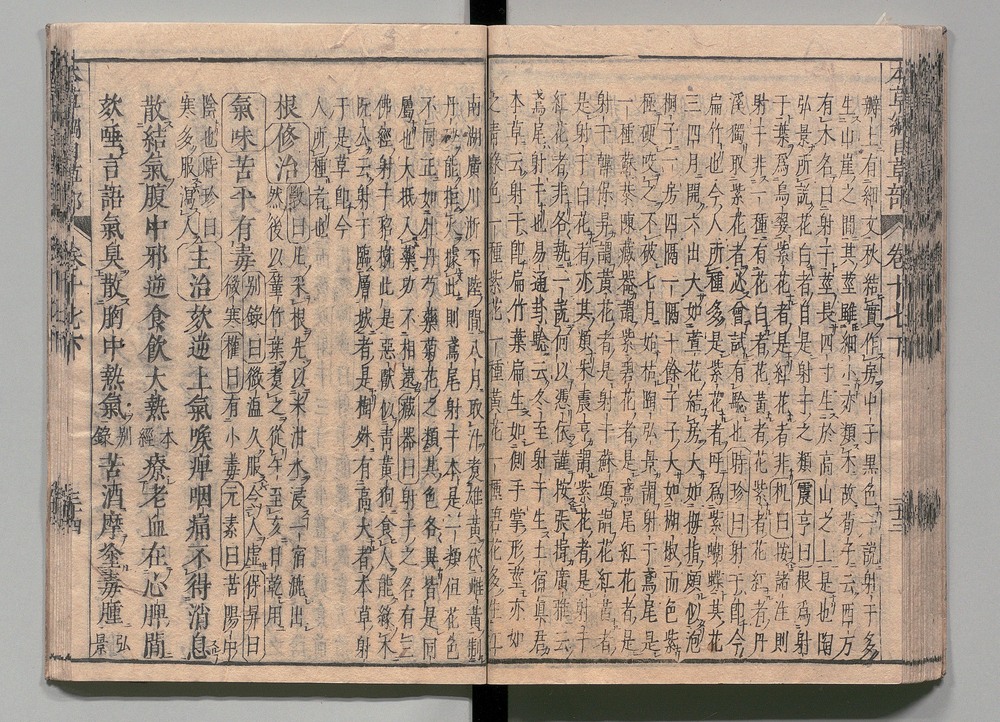 瓣上有細文秋結實作房中子黒色一說射干多
生山崖之間其莖雖細小亦類木故荀子云西方
有木名曰射干莖長四寸生於高山之上是也陶
弘景所說花白者自是射干之類震亨曰根爲射
干葉爲烏翣紫花者是紅花者非機曰按諸注則
射干非一種有花白者花黃者花紫者花紅者丹
溪獨取紫花者必曾試有驗也時珍曰射干即今
扁竹也今人所種多是紫花者呼爲紫蝴蝶其花
三四月開六出大如萱花結房大如拇指頗似泡
桐子一房四隔一隔十餘子子大如胡椒而色紫
極硬咬之不破七月始枯陶弘景謂射干鳶尾是
一種蘇恭陳藏器謂紫碧花者是鳶尾紅花者是
射干韓保昇謂黃花者是射干蘇頌謂花紅黃者
是射干白花者亦其類朱震亨謂紫花者是射干
紅花者非各執一說何以憑依謹按張揖廣雅云
鳶尾射干也易通卦驗云冬至射干生土宿真君
本草云射干即扁竹葉扁生如側手掌形莖亦如
之青綠色一種紫花一種黃花一種碧花多生江
南湖廣川浙平陸間八月取汁煮雄黃伏雌黃制
丹砂能拒火據此則鳶尾射干本是一類但花色
不同正如牡丹芍藥菊花之類其色各異皆是同
屬也大抵入藥功不相遠藏器曰射干之名有三
佛經射干貂㺄此是惡獣似青黃狗食人能緣木
阮公云射干臨層城者是樹殊有高大者本草射
干是草即今
人所種者也
根修治斅曰凡采根先以米泔水浸一宿漉出
然後以䈽竹葉煮之從午至亥日乾用
氣味苦平有毒別錄曰微溫久服令人虛保昇曰
微寒權曰有小毒元素曰苦陽中
陰也時珍曰
寒多服瀉人主治欬逆上氣喉痺咽痛不得消息
散結氣腹中邪逆食飲大熱本經療老血在心脾間
欬唾言語氣臭散胸中熱氣別錄苦酒摩塗毒腫弘景
本草綱目草部 卷十七下 三十三
本草綱目草部 卷十七下 三十四